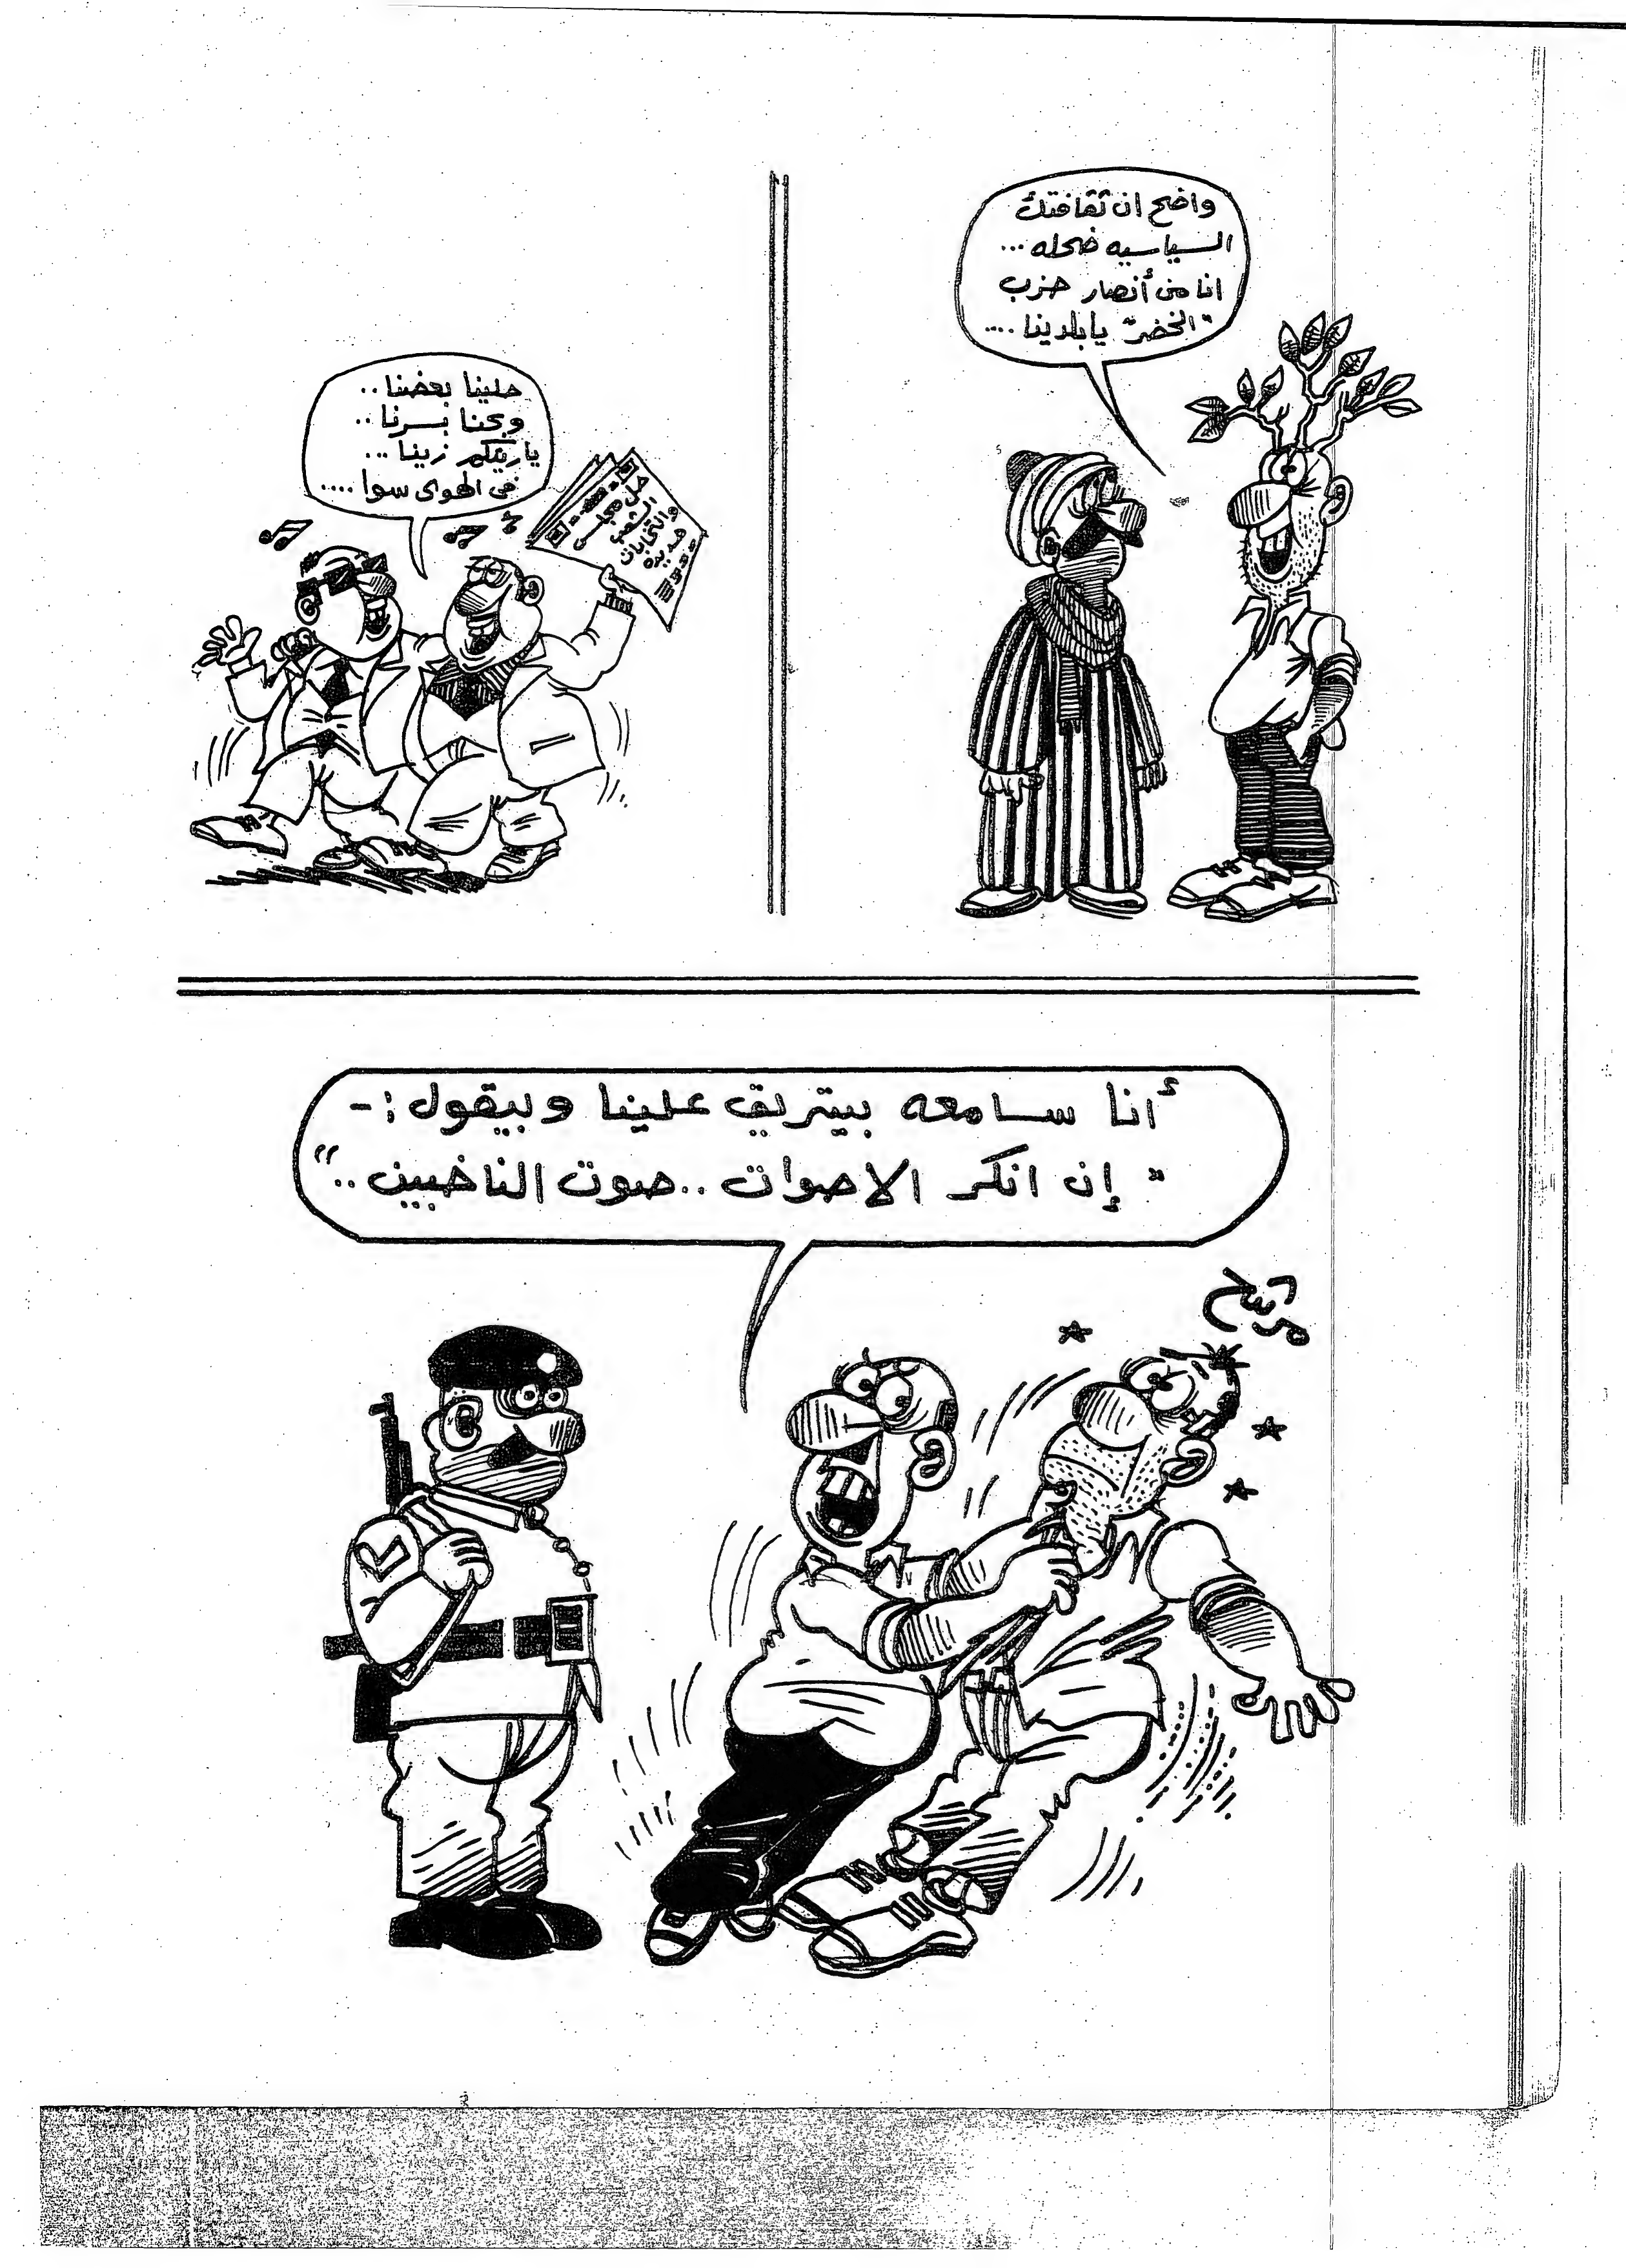 واضح ان ثقافتك
السياسيه ضحله ...
انا من أنصار حزب
"الخضر" يا بلدينا ....
حلينا بعضنا ..
وبحنا بسرنا ..
ياريتكم زينا ...
فى الهوى سوا ....
حل مجلس
الشعب
وانتخابات
جديده
أنا سامعه بيتريق علينا وبيقول :-
" إن انكر الاصوات .. صوت الناخبين .. "